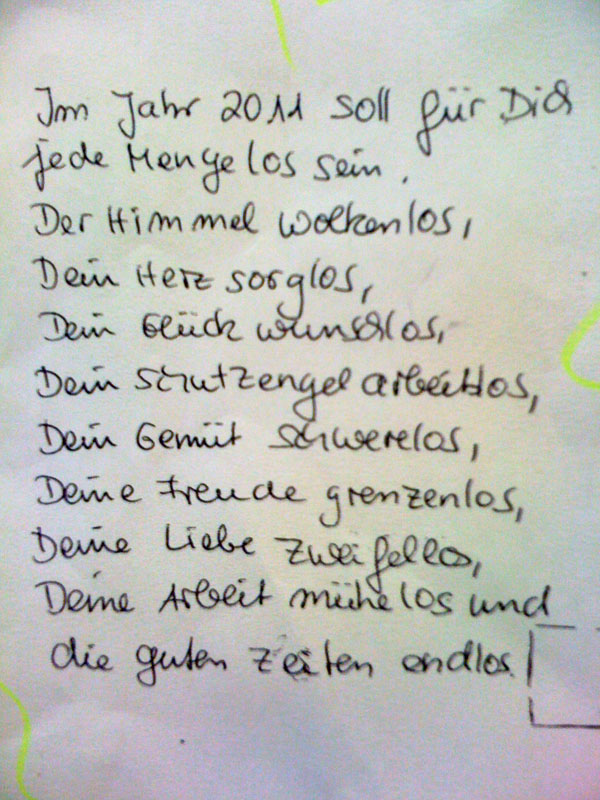 Im Jahr 2011 soll für Dich
jede Menge los sein.
Der Himmel wolkenlos,
Dein Herz sorglos,
Dein Glück wunschlos,
Dein Schutzengel arbeitslos,
Dein Gemüt schwerelos,
Deine Freude grenzenlos,
Deine Liebe zweifellos,
Deine Arbeit mühelos und
die guten Zeiten endlos!